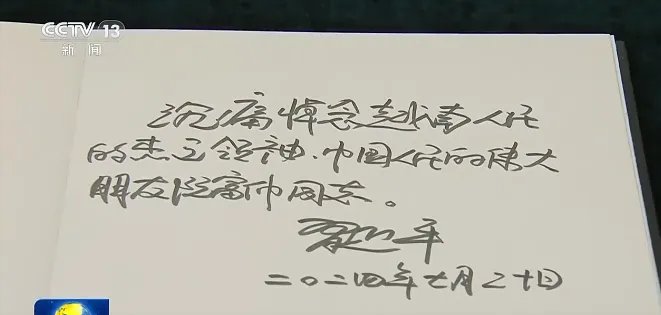 CCTV 13
新闻
沉痛悼念越南人民
的杰出领袖、中国人民的伟大
朋友阮富仲同志。
习近平
二〇二四年七月二十日